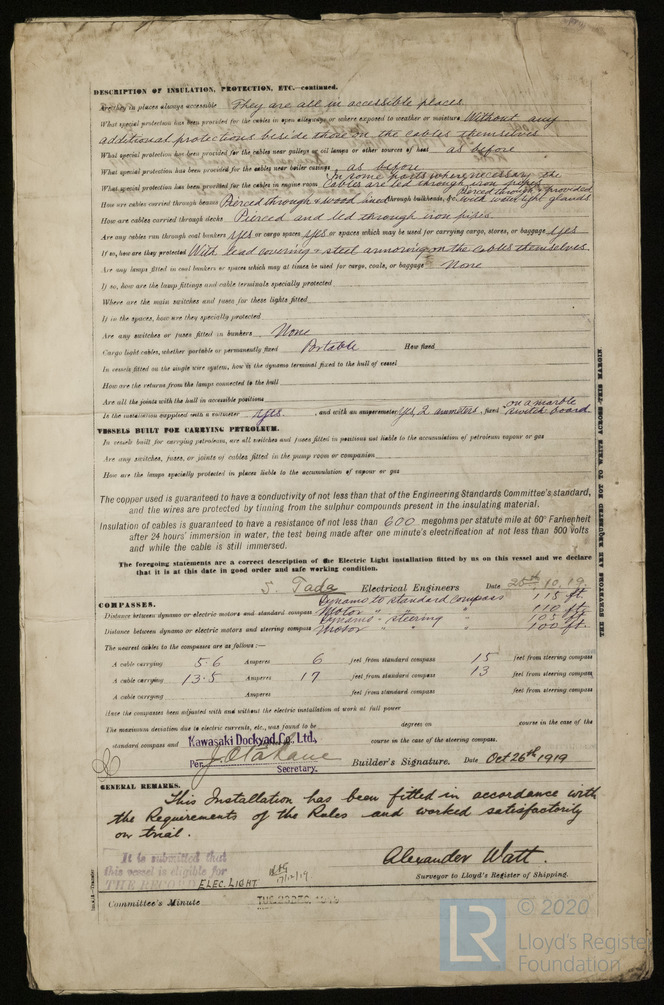 DESCRIPTION OF INSULATION, PROTECTION, ETC.—continued.
Are they in places always accessible They are all in accessible places
What special protection has been provided for the cables in open alleyways or where exposed to weather or moisture Without any
additional protections beside those on the cables themselves
What special protection has been provided for the cables near galleys or oil lamps or other sources of heat as before
What special protection has been provided for the cables near boiler casings as before
In some parts where necessary the
What special protection has been provided for the cables in engine room Cables are led through iron pipes
Pierced through & provided
How are cables carried through beams Pierced through & wood lined through bulkheads, &c. with water tight glands
How are cables carried through decks Pierced and led through iron pipes
Are any cables run through coal bunkers yes or cargo spaces yes or spaces which may be used for carrying cargo, stores, or baggage yes
If so, how are they protected With lead covering & steel armoring on the cables themselves
Are any lamps fitted in coal bunkers or spaces which may at times be used for cargo, coals, or baggage None
If so, how are the lamp fittings and cable terminals specially protected
Where are the main switches and fuses for these lights fitted
If in the spaces, how are they specially protected
Are any switches or fuses fitted in bunkers None
Cargo light cables, whether portable or permanently fixed Portable How fixed
In vessels fitted on the single wire system, how is the dynamo terminal fixed to the hull of vessel
How are the returns from the lamps connected to the hull
Are all the joints with the hull in accessible positions
on a marble
In the installation supplied with a voltmeter yes. , and with an amperemeter yes, 2 ammeters, fixed switch board
VESSELS BUILT FOR CARRYING PETROLEUM.
In vessels built for carrying petroleum, are all switches and fuses fitted in positions not liable to the accumulation of petroleum vapour or gas
Are any switches, fuses, or joints of cables fitted in the pump room or companion
How are the lamps specially protected in places liable to the accumulation of vapour or gas
The copper used is guaranteed to have a conductivity of not less than that of the Engineering Standards Committee's standard,
and the wires are protected by tinning from the sulphur compounds present in the insulating material.
Insulation of cables is guaranteed to have a resistance of not less than 600 megohms per statute mile at 60° Farhenheit
after 24 hours' immersion in water, the test being made after one minute's electrification at not less than 500 volts
and while the cable is still immersed.
The foregoing statements are a correct description of the Electric Light installation fitted by us on this vessel and we declare
that it is at this date in good order and safe working condition.
S. Tada Electrical Engineers Date 25th 10. 19.
COMPASSES.
Dynamo to standard compass 115 ft.
Distance between dynamo or electric motors and standard compass Motor " " " 110 ft.
Dynamo " steering " 105 ft.
Distance between dynamo or electric motors and steering compass Motor " " " 100 ft.
The nearest cables to the compasses are as follows:—
A cable carrying 5.6 Amperes 6 feet from standard compass 15 feet from steering compass
A cable carrying 13.5 Amperes 17 feet from standard compass 13 feet from steering compass
A cable carrying Amperes feet from standard compass feet from steering compass
Have the compasses been adjusted with and without the electric installation at work at full power
The maximum deviation due to electric currents, etc., was found to be degrees on course in the case of the
standard compass and Kawasaki Dockyad Co. Ltd., course in the case of the steering compass.
Per Builder's Signature. Date Oct 26th 1919
Secretary.
GENERAL REMARKS.
This Installation has been fitted in accordance with
the Requirements of the Rules and worked satisfactorily
on trial.
It is submitted that
this vessel is eligible for
THE RECORD ELEC. LIGHT
Alexander Watt.
Surveyor to Lloyd's Register of Shipping.
Committee's Minute TUE. 23 DEC. 1919
THE SURVEYORS ARE REQUESTED NOT TO WRITE ACROSS THIS MARGIN
LR
© 2020
Lloyd's Register
Foundation